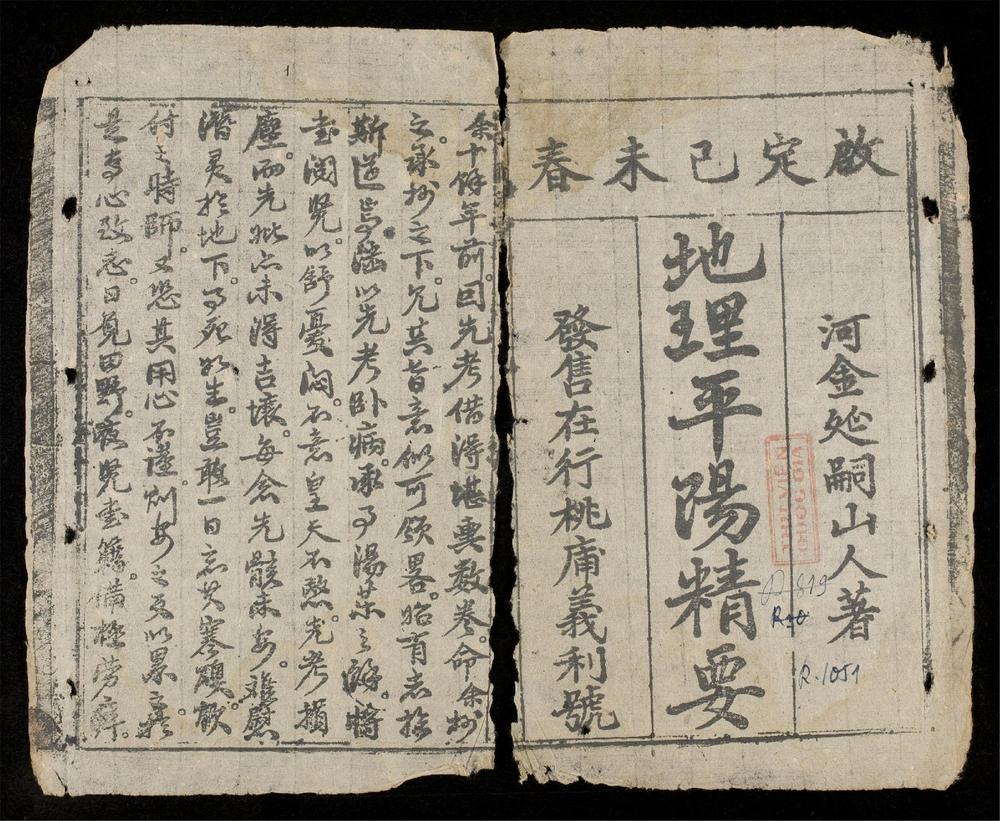 啟定己未春
河金延嗣山人著
地理平陽精要
發售在行桃庯義利號
THƯ VIỆN
QUỐC GIA
R.1051
余十餘年前。囙先考借得堪輿数卷。命余抄
之。承抄之下。凢其旨意似可領畧。始有志於
斯道焉。以先考卧病。承湯茶之餘。将
閲覽。以舒憂悶。不意皇天不憗。先考損
塵。而先妣亦未得吉壤。每念先骸未安。難慰
潛灵於地下。事死如生。豈敢一日忘其寒暖歟。
付之時師。又恐其用心不謹。则安之反以累之。於
是专心改志。日覓田野。夜覽籍。備極劳瘁。